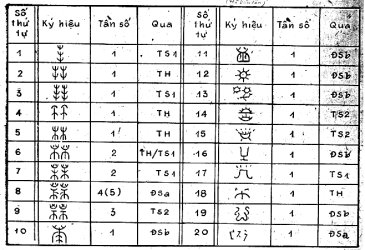 Số thứ tự Ký hiệu Tần số Qua Số thứ tự Ký hiệu Tần số Qua
1 1 TS1 11 1 ĐSb
2 1 TH 12 1 ĐSb
3 2 TS1 13 1 ĐSb
4 1 TH 14 1 TS2
5 1 TH 15 1 TS2
6 2 TH/TS1 16 1 ĐSb
7 2 TS1 17 1 TS1
8 4(5) ĐSa 18 1 TH
9 3 TS2 19 1 ĐSb
10 1 ĐSb 20 1 ĐSa